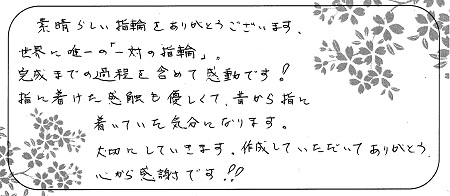 素晴らしい指輪をありがとうございます、
世界に唯一の「一対の指輪」。
完成までの過程を含めて感動です!
指に着けた感触も優しくて、昔から指に
着いていた気分になります。
大切にしていきます。作成していただいてありがとう、
心から感謝です!!